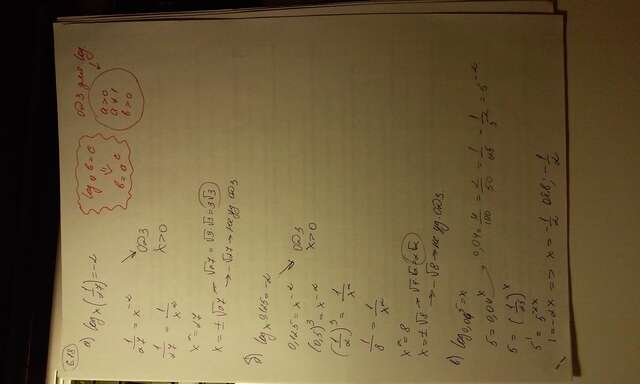 6.18
а) log_x (1/27) = -2
log_a b = c
⇓
b = a^c
ОДЗ для log.
a > 0
a ≠ 1
b > 0
1/27 = x^-2
ОДЗ
x > 0
1/27 = 1/x^2
x^2 = 27
x = ± √27 → √27 = √9·√3 = 3√3
→ -√27 → не уд. ОДЗ
б) log_x 0,125 = -2
0,125 = x^-2
ОДЗ
x > 0
(0,5)^3 = x^-2
(1/2)^3 = 1/x^2
1/8 = 1/x^2
x^2 = 8
x = ± √8 → √8 = 2√2
→ -√8 → не уд. ОДЗ.
в) log_0,04 5 = x
5 = 0,04^x → 0,04 = 4/100 = 2/50 = 1/25 - 1/5^2 = 5^-2
5 = (1/25)^x
5^1 = 5^-2x
1 = -2x => x = -1/2 Отв; -1/2